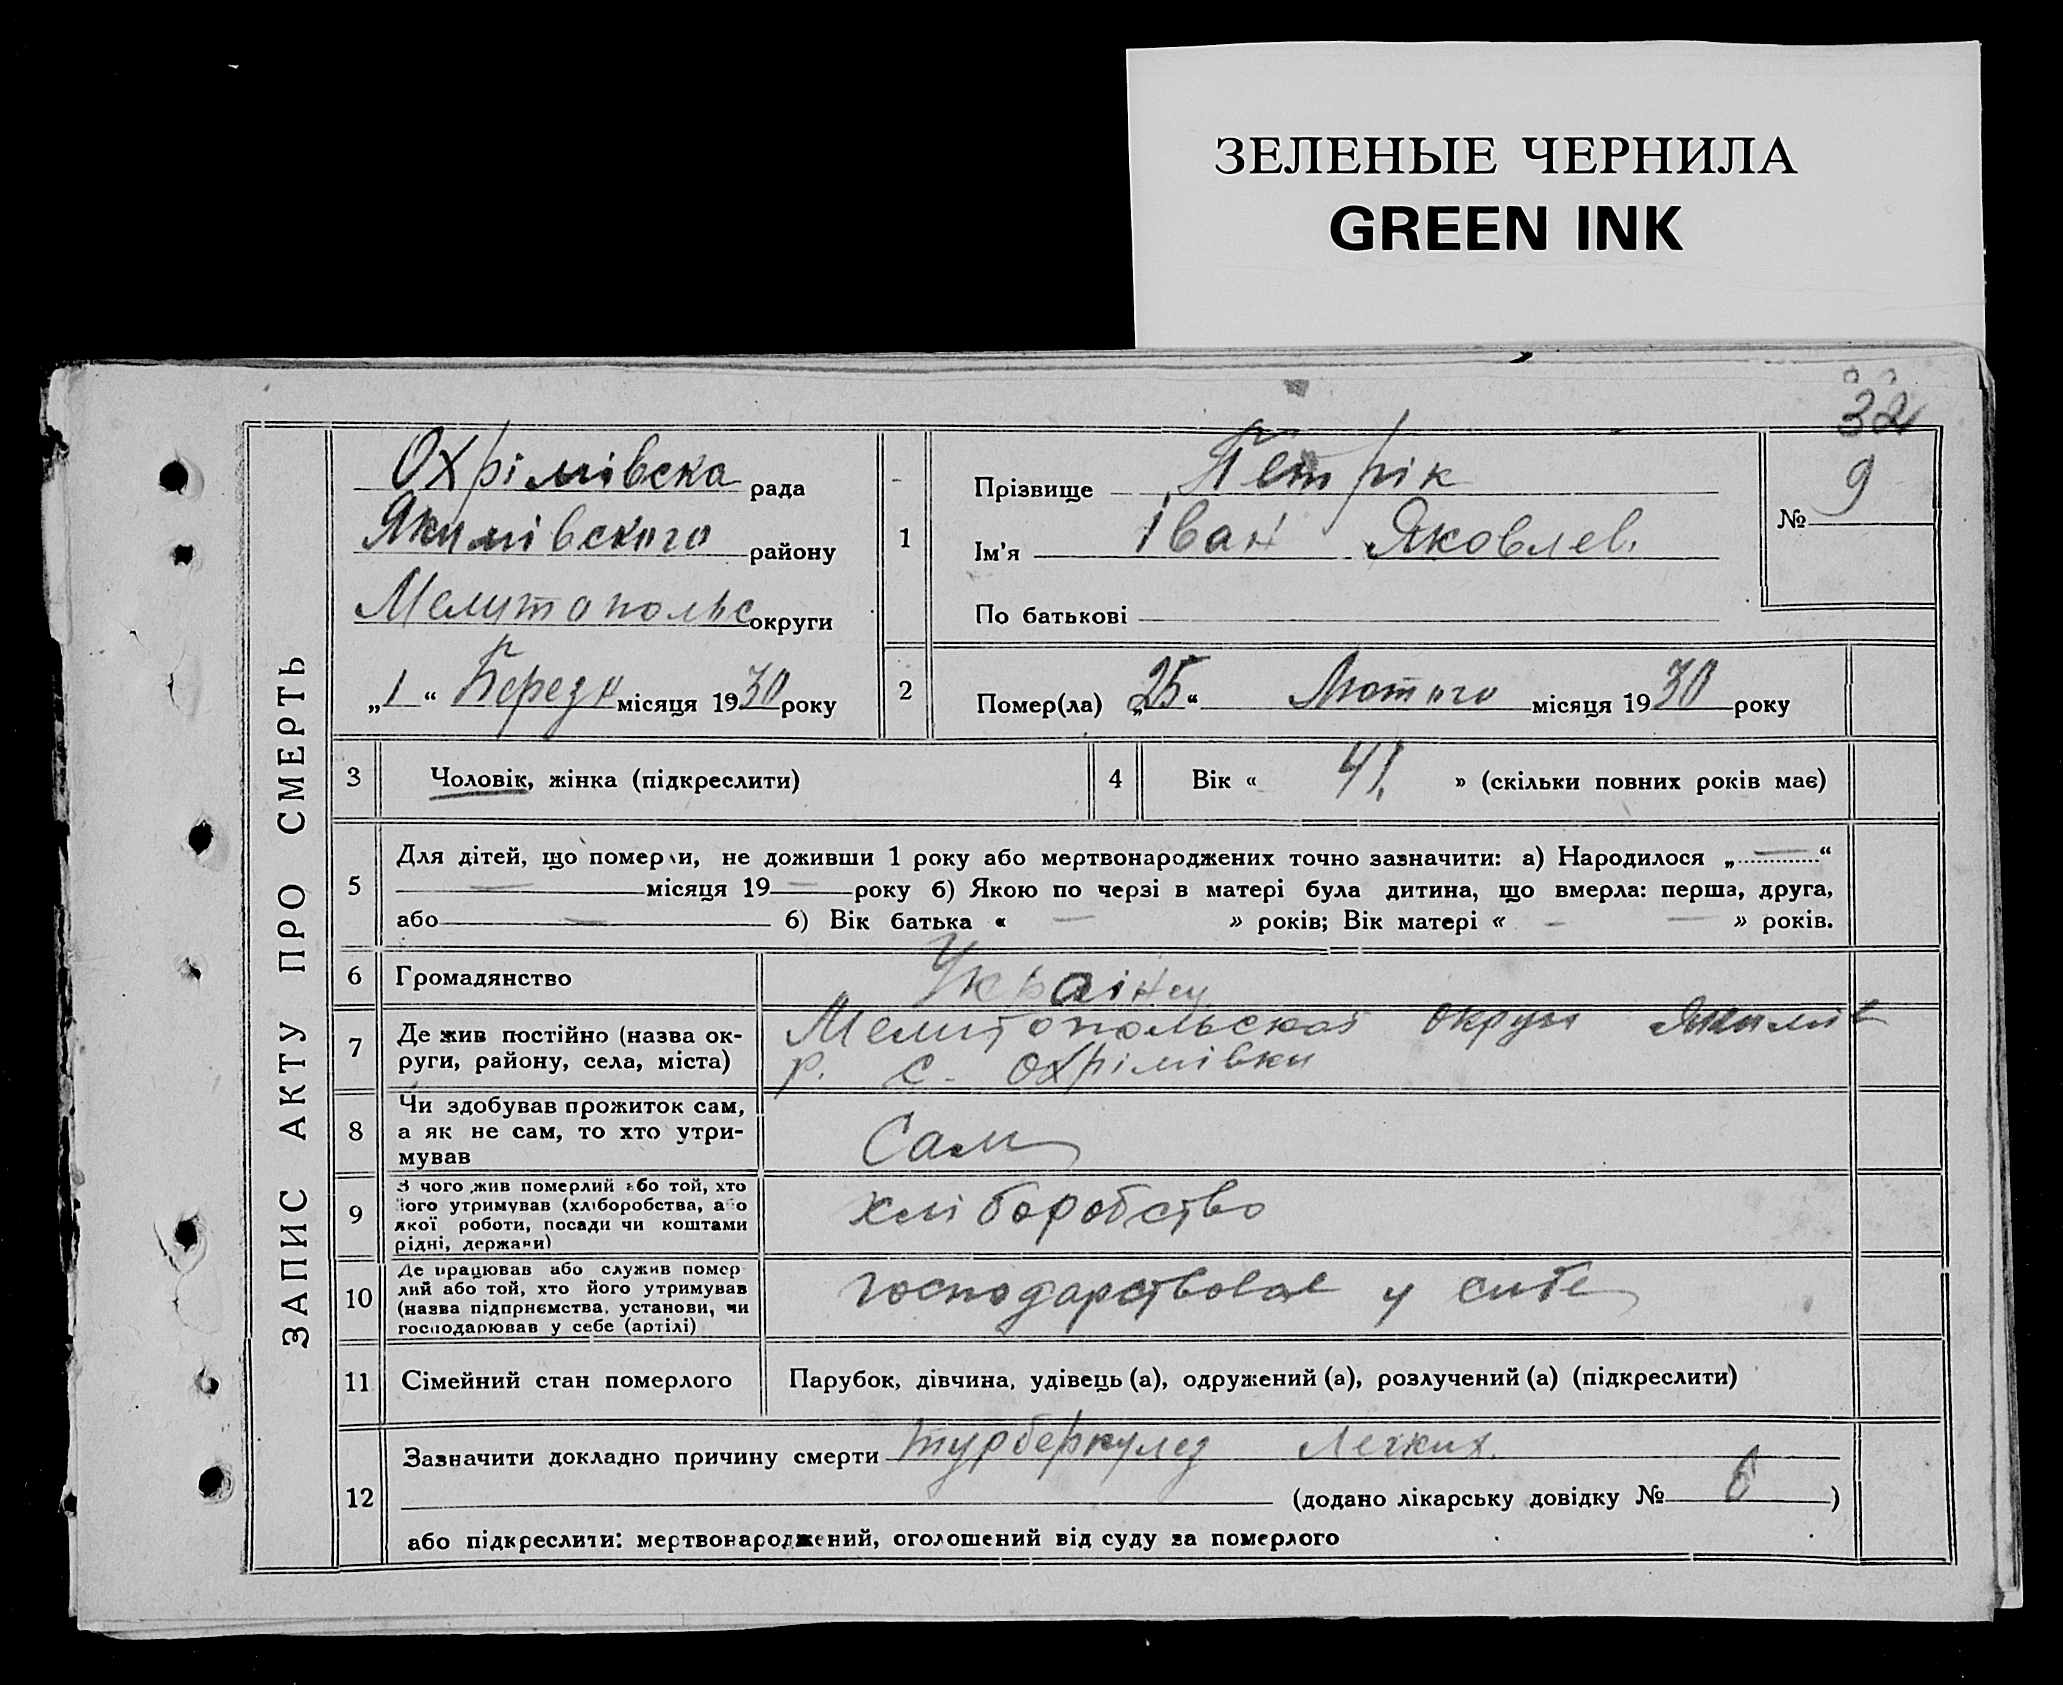 ЗЕЛЕНЫЕ ЧЕРНИЛА
GREEN INK
32
ЗАПИС АКТУ ПРО СМЕРТЬ
Охрімівска рада
Якимівского району
Мелитопольс округи
„1“ Березн місяця 1930 року
1
Прізвище Петрік
Ім'я Іван Яковлев.
По батькові
№ 9
2
Помер(ла) „25“ Лютого місяця 1930 року
3
Чоловік, жінка (підкреслити)
4
Вік « 41 » (скільки повних років має)
5
Для дітей, що померли, не доживши 1 року або мертвонароджених точно зазначити: а) Народилося „ — “
— місяця 19 — року б) Якою по черзі в матері була дитина, що вмерла: перша, друга,
або — б) Вік батька « — » років; Вік матері « - — » років.
6
Громадянство
Українец
7
Де жив постійно (назва ок-
руги, району, села, міста)
Мелитопольской округи Якимів
р. с. Охрімівки
8
Чи здобував прожиток сам,
а як не сам, то хто утри-
мував
Сам
9
З чого жив померлий або той, хто
його утримував (хліборобства, або
якої роботи, посади чи коштами
рідні, держави)
хліборобство
10
Де працював або служив помер-
лий або той, хто його утримував
(назва підприємства, установи, чи
господарював у себе (артілі)
господарствовав у сибе
11
Сімейний стан померлого
Парубок, дівчина, удівець (а), одружений (а), розлучений (а) (підкреслити)
12
Зазначити докладно причину смерти турберкулез Легких.
(додано лікарську довідку № 6 )
або підкреслити: мертвонароджений, оголошений від суду за померлого